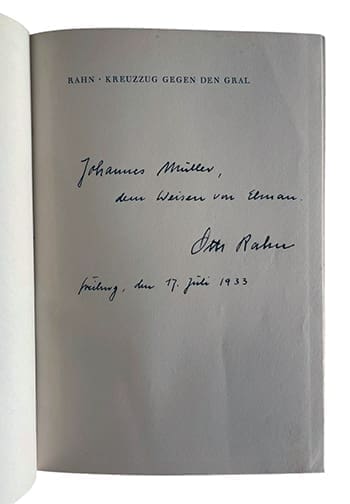 RAHN · KREUZZUG GEGEN DEN GRAL
Johannes Müller,
dem Weisen von Elmau.
Otto Rahn
Freiburg, den 17. Juli 1933